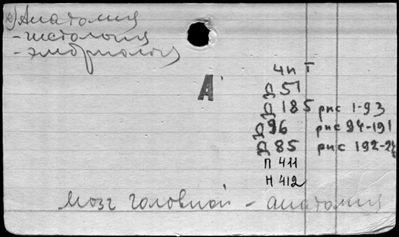 Анатомия
- гистология
- эмбриология
А
Чи Т
Д 51
Д 185 рис 1-93
Д 96 рис 94-191
Д 85 рис 192-
П 411
Н 412
Мозг головной - анатомия